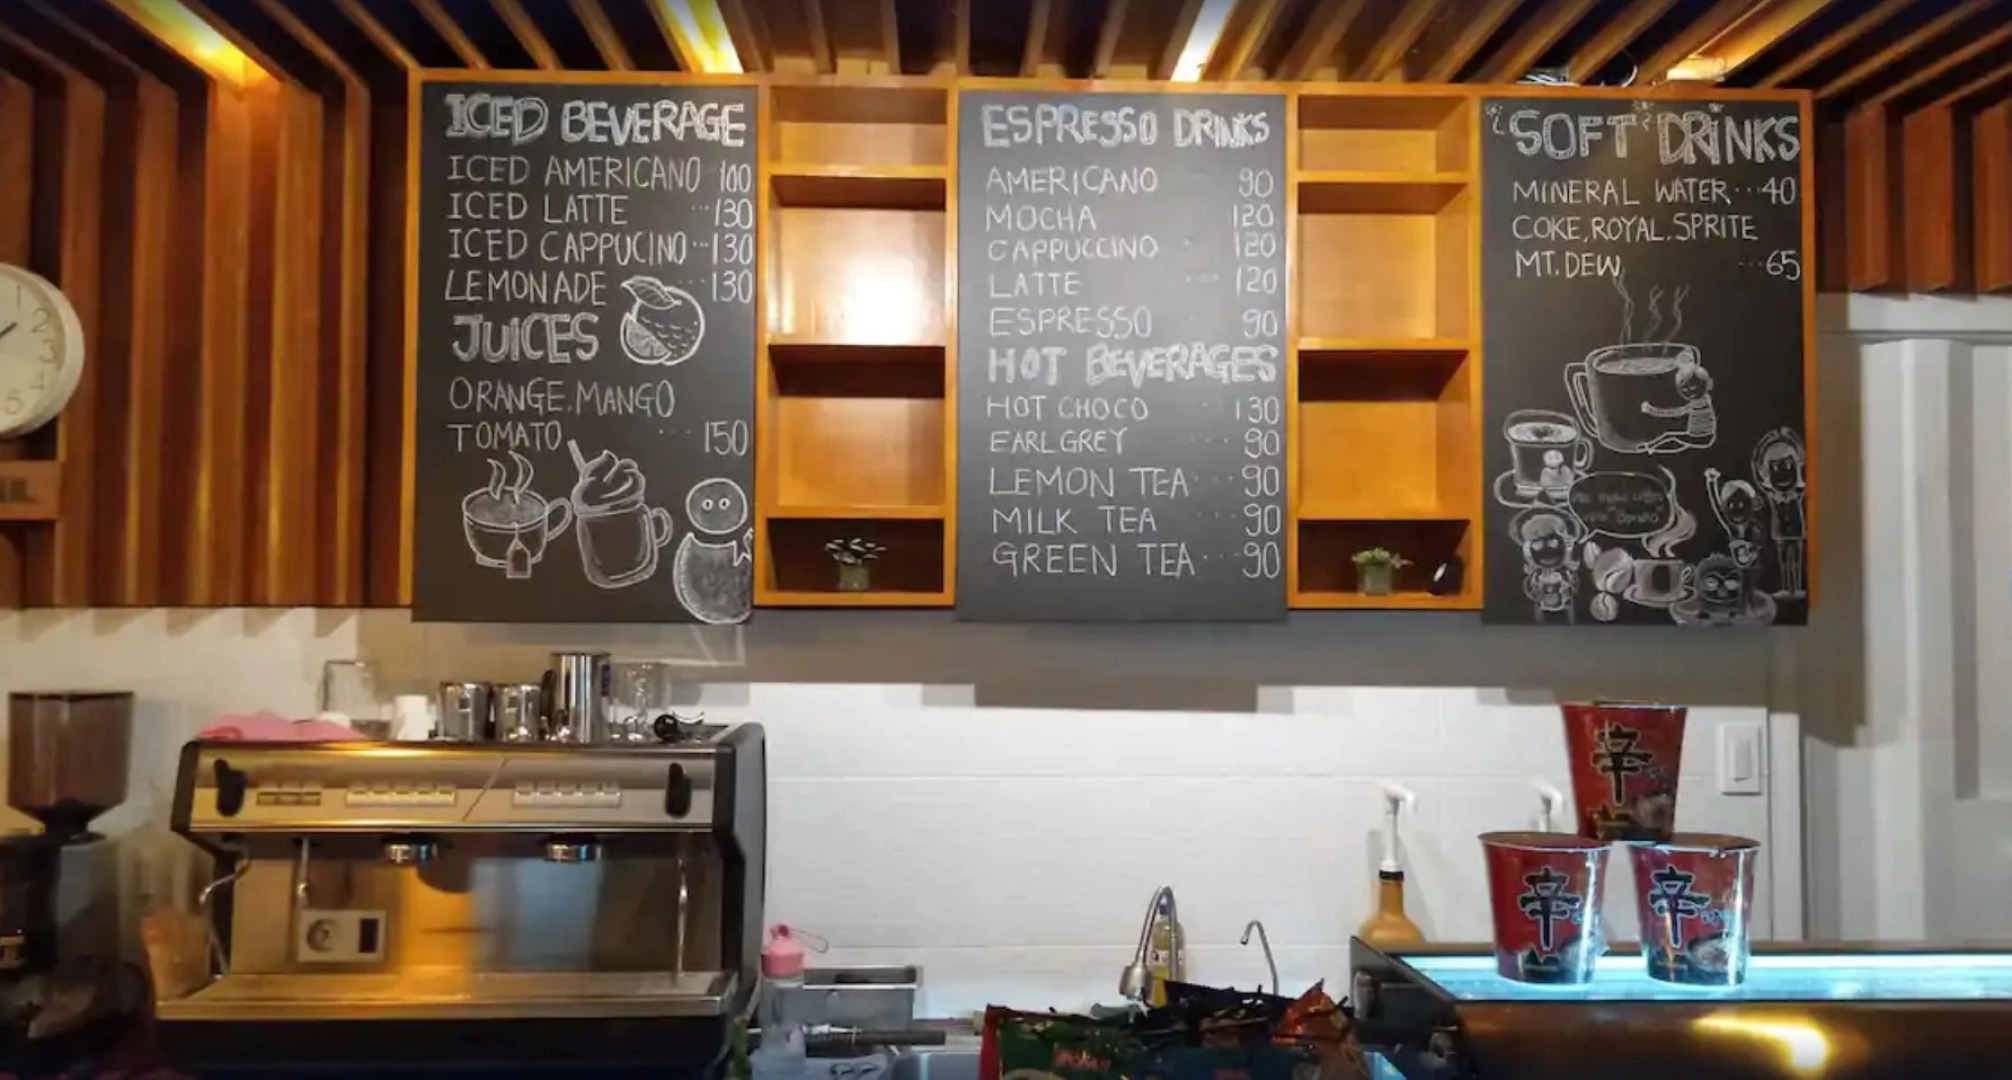 ICED BEVERAGE
ICED AMERICANO 100
ICED LATTE ...130
ICED CAPPUCINO...130
LEMONADE ...130
JUICES
ORANGE, MANGO
TOMATO ...150
ESPRESSO DRINKS
AMERICANO 90
MOCHA 120
CAPPUCCINO 120
LATTE ... 120
ESPRESSO 90
HOT BEVERAGES
HOT CHOCO ... 130
EARL GREY .... 90
LEMON TEA ... 90
MILK TEA .... 90
GREEN TEA ... 90
SOFT DRINKS
MINERAL WATER ...40
COKE, ROYAL, SPRITE
MT. DEW ...65
1
2
3
4
5
辛
辛
辛